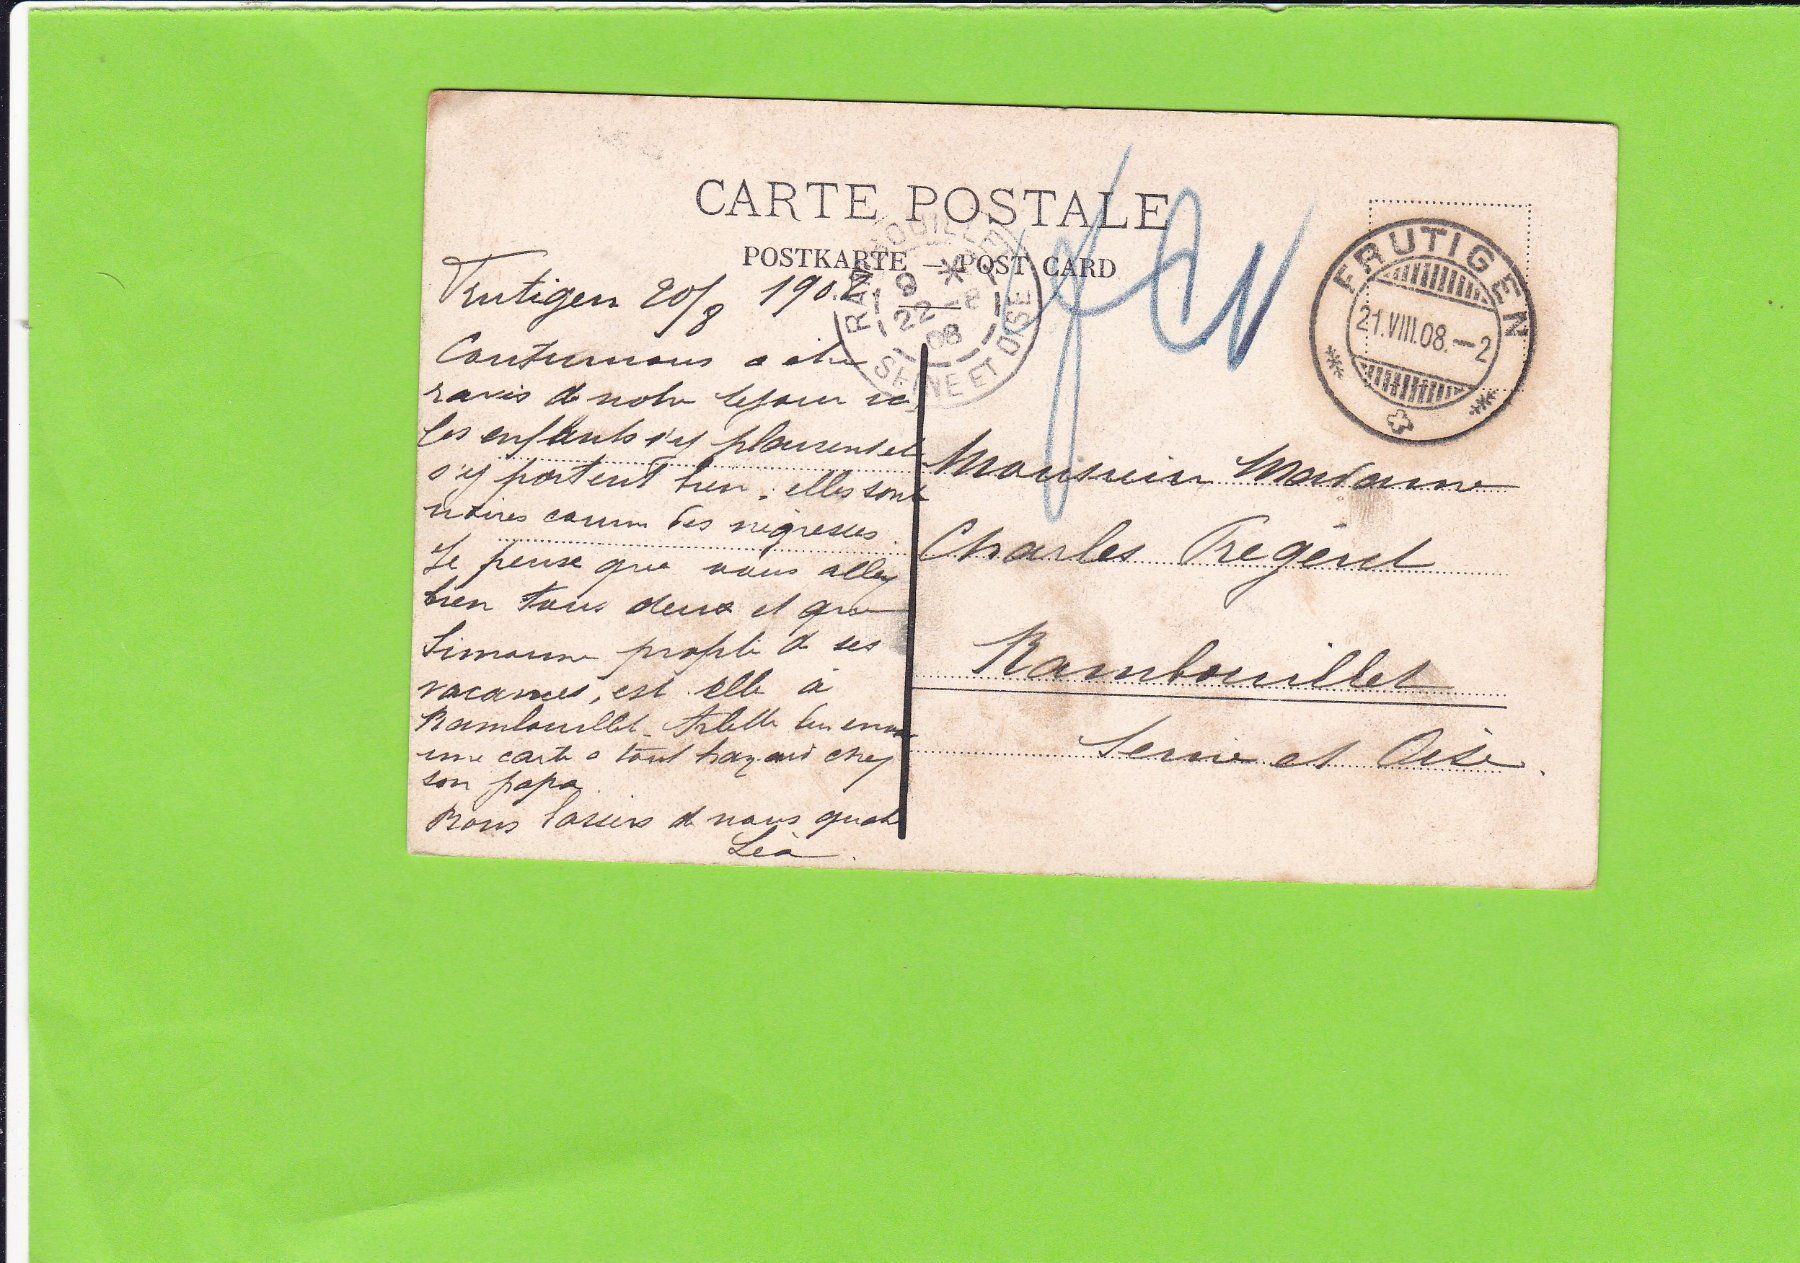 CARTE POSTALE
POSTKARTE — POST CARD
RAMBOUILLET
22 - 8
08
SEINE ET OISE
FRUTIGEN
21.VIII.08.–2
Frutigen 20/8 190
Continuons a être
ravis de notre séjour ici
les enfants s'y plaisent et
s'y portent bien. elles sont
noires comme des négresses.
Je pense que vous allez
bien tous deux et que
Simonne profite de ses
vacances, est elle à
Rambouillet. Arlette lui envoie
une carte a tout hazard chez
son papa
Bons baisers de nous quatre
Léa.
Monsieur Madame
Charles Trégent
Rambouillet
Seine et Oise.